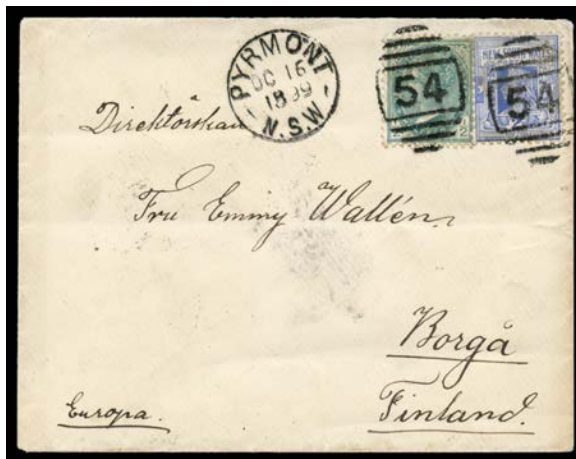 PYRMONT
DC 16
1899
N.S.W
54
54
NEW SOUTH WALES
Direktörskan
Fru Emmy Wallén
Borgå
Finland.
Europa.